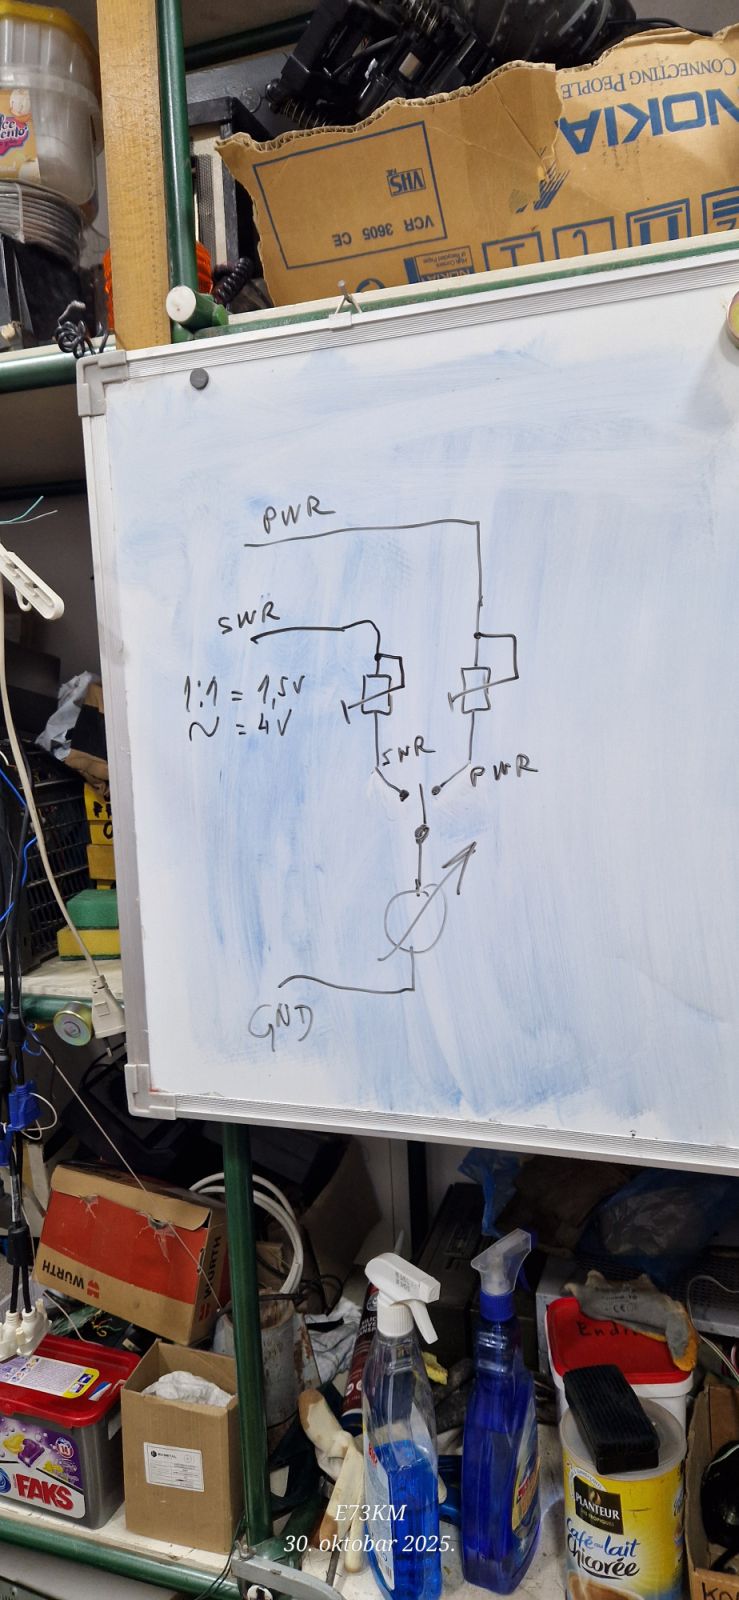 CONNECTING PEOPLE
NOKIA
VHS
VCR 3605 CE
NOKIA
PWR
SWR
1:1 = 1,5V
~ = 4V
SWR
PWR
GND
WÜRTH
WÜRTH
FAKS
PLANTEUR
Café au lait
Chicorée
E73KM
30. oktobar 2025.